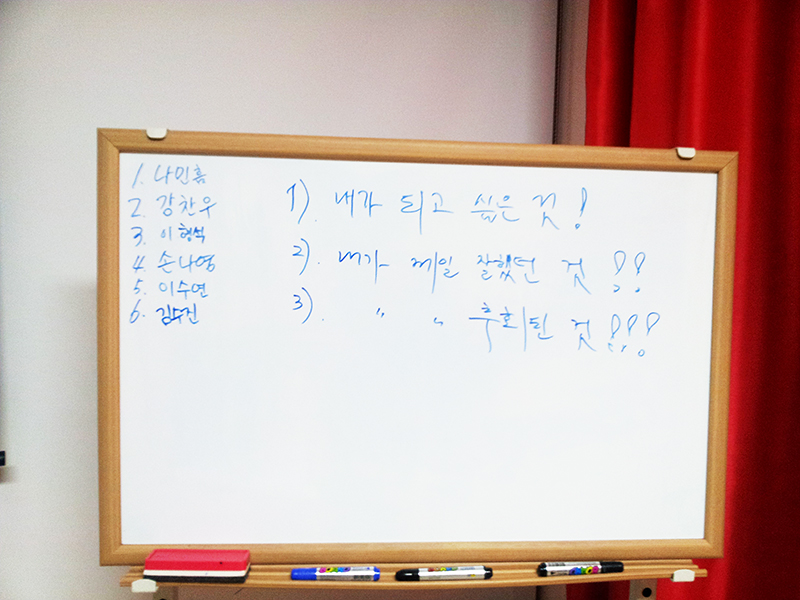 1. 나인흠
2. 강찬우
3. 이형석
4. 손나영
5. 이수연
6. 김수진
1). 내가 되고 싶은 것!
2). 내가 제일 잘했던 것!!
3). 〃 〃 후회된 것!!!